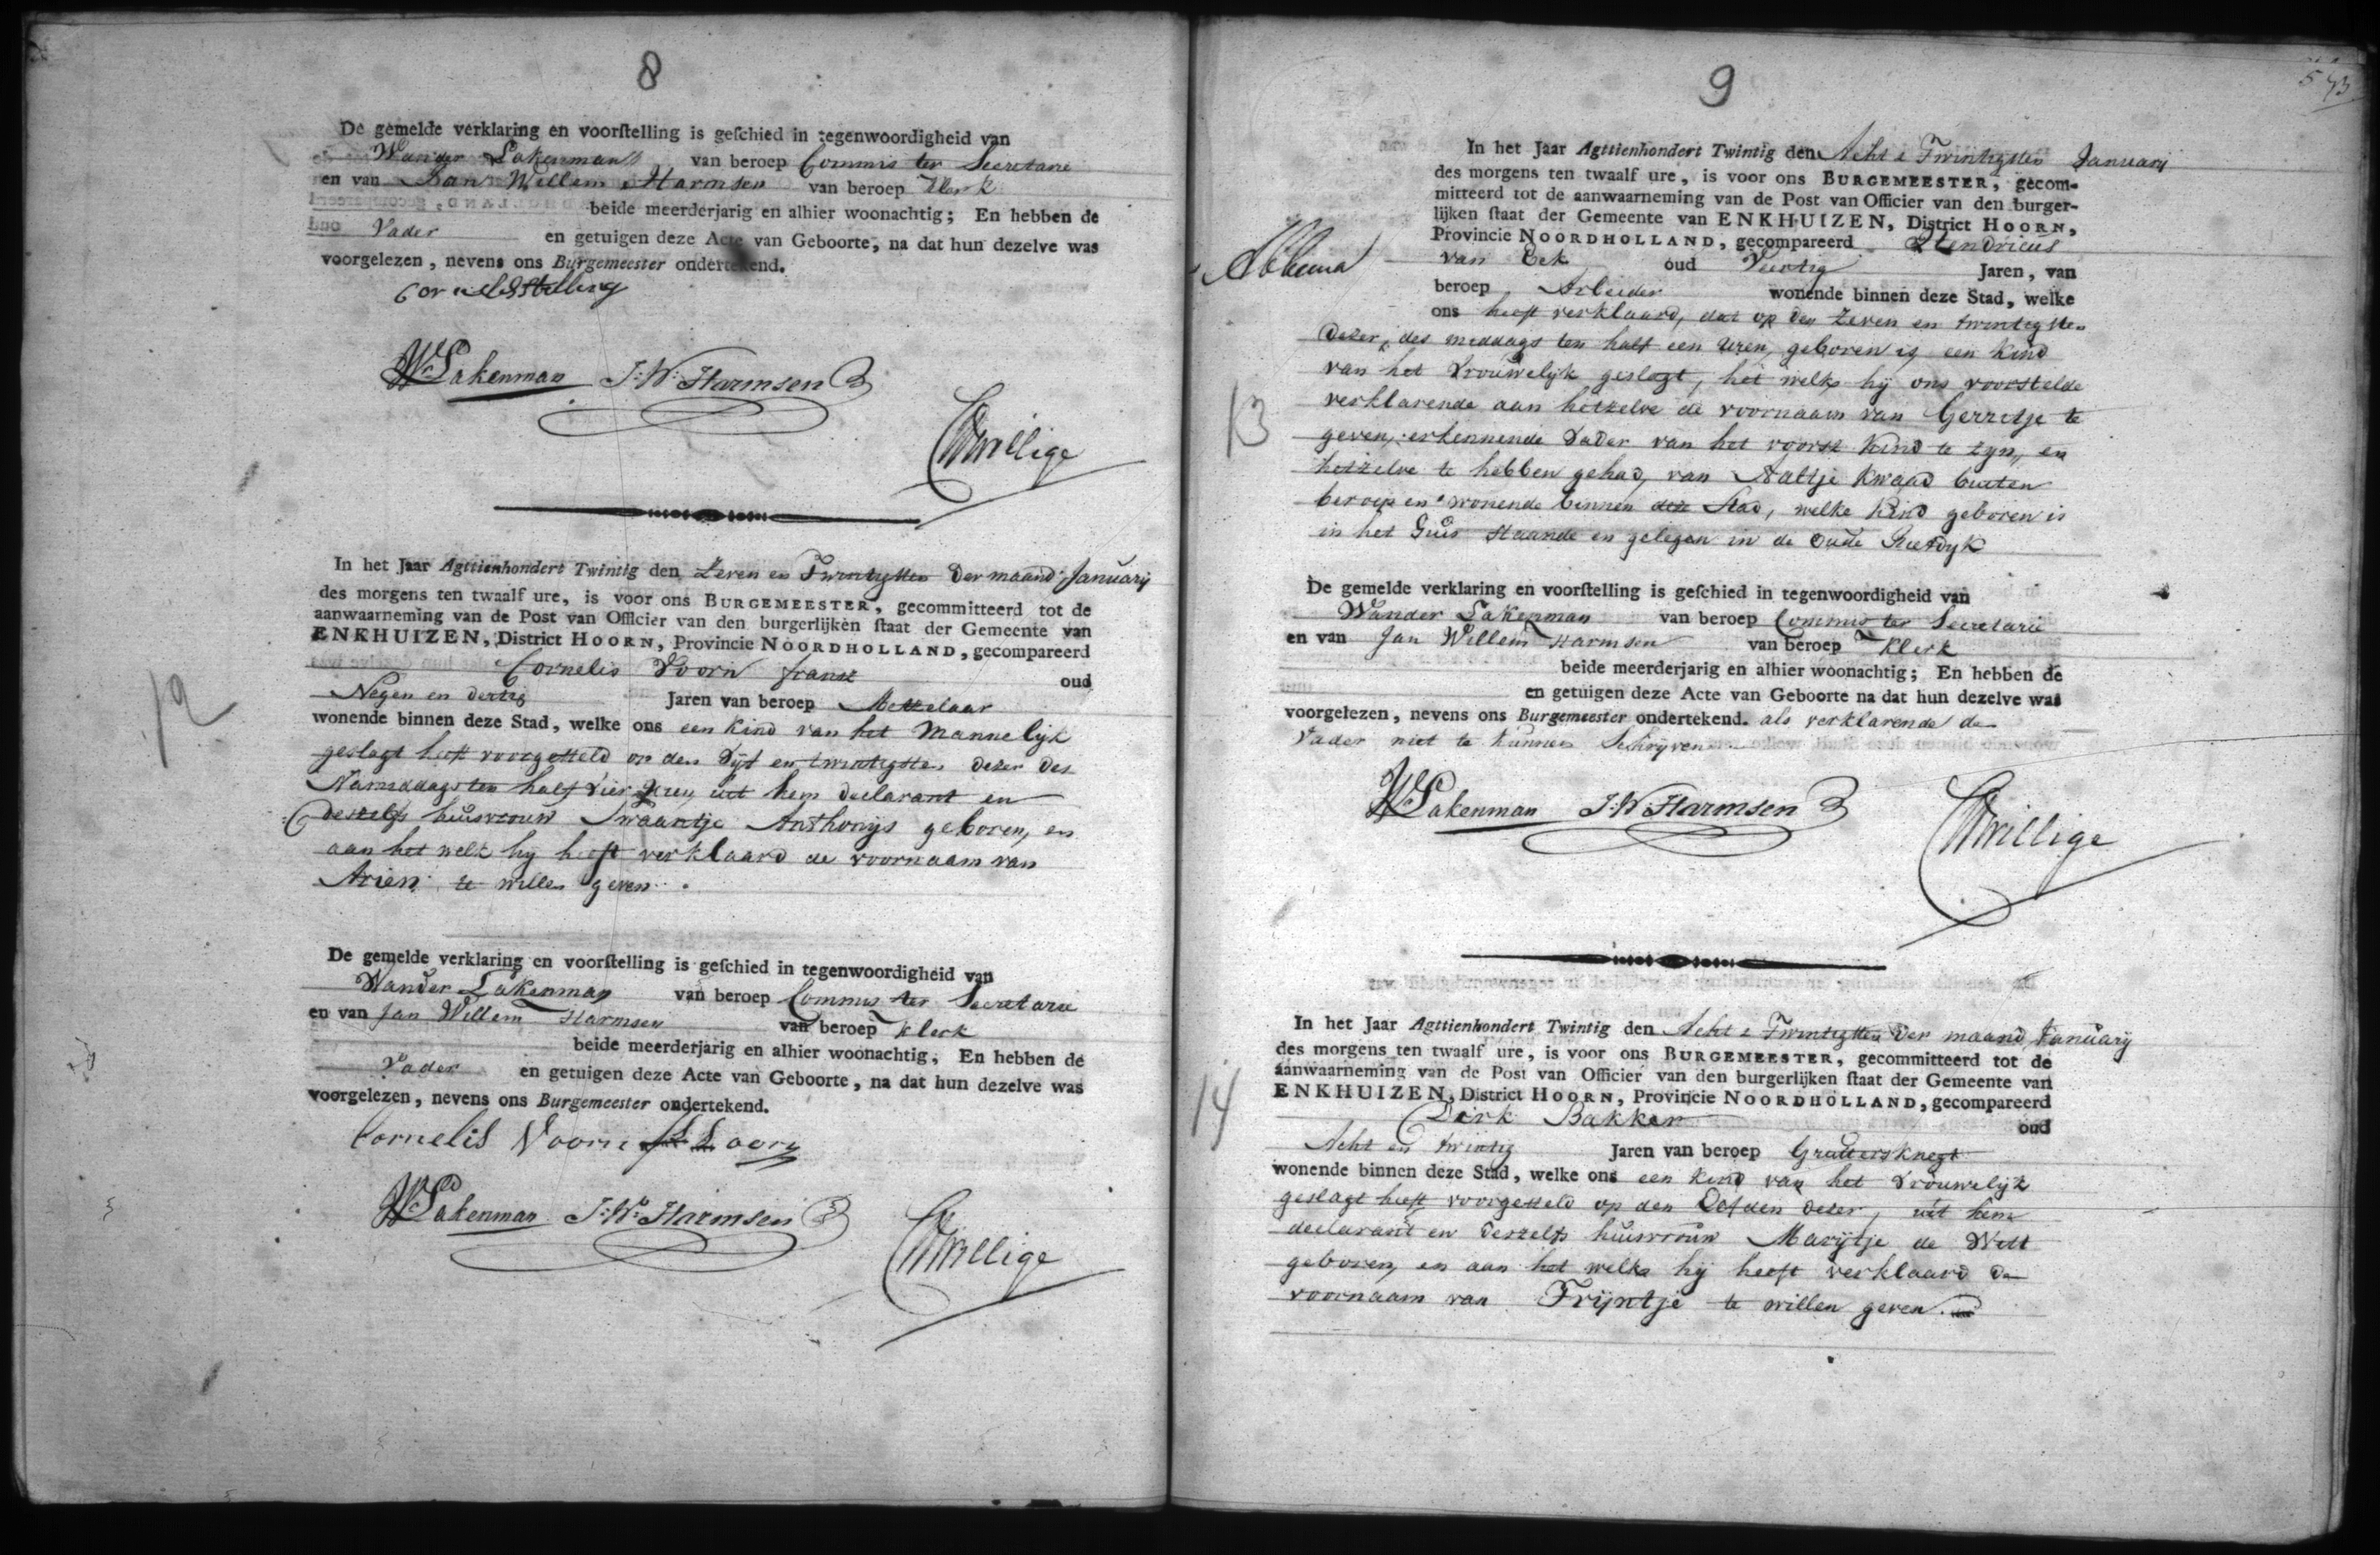 8
De gemelde verklaring en voorstelling is geschied in tegenwoordigheid van
Wander Lakenman van beroep Commis ter Secretarie
en van Jan Willem Harmsen van beroep Klerk
beide meerderjarig en alhier woonachtig; En hebben de
Vader en getuigen deze Acte van Geboorte, na dat hun dezelve was
voorgelezen, nevens ons Burgemeester ondertekend.
Cornelis Stelling
W Lakenman J: W: Harmsen
In het Jaar Agttienhondert Twintig den Zeven en Twintigsten der maand January
des morgens ten twaalf ure, is voor ons BURGEMEESTER, gecommitteerd tot de
aanwaarneming van de Post van Officier van den burgerlijken staat der Gemeente van
ENKHUIZEN, District HOORN, Provincie NOORDHOLLAND, gecompareerd
12
Cornelis Voorn fransz oud
Negen en dertig Jaren van beroep Metzelaar
wonende binnen deze Stad, welke ons een Kind van het Mannelijk
geslagt heeft voorgesteld op den Vijf en twintigsten dezer des
Namiddags ten half vier uren uit hem declarant en
deszelfs huisvrouw Swaantje Anthonijs geboren, en
aan het welk hij heeft verklaard de voornaam van
Arien te willen geven.
De gemelde verklaring en voorstelling is geschied in tegenwoordigheid van
Wander Lakenman van beroep Commis ter Secretarie
en van Jan Willem Harmsen van beroep Klerk
beide meerderjarig en alhier woonachtig; En hebben de
Vader en getuigen deze Acte van Geboorte, na dat hun dezelve was
voorgelezen, nevens ons Burgemeester ondertekend.
Cornelis Voorn
W Lakenman J: W: Harmsen
9
In het Jaar Agttienhondert Twintig den Acht & Twintigsten January
des morgens ten twaalf ure, is voor ons BURGEMEESTER, gecom-
mitteerd tot de aanwaarneming van de Post van Officier van den burger-
lijken staat der Gemeente van ENKHUIZEN, District HOORN,
Provincie NOORDHOLLAND, gecompareerd Hendricus
van Eek oud Veertig Jaren, van
beroep Arbeider wonende binnen deze Stad, welke
ons heeft verklaard, dat op den Zeven en twintigsten
dezer, des middags ten half een uren, geboren is een Kind
van het Vrouwelijk geslagt, het welk hij ons voorstelde
13
verklarende aan hetzelve de voornaam van Gerritje te
geven, erkennende Vader van het voorsz Kind te zyn, en
hetzelve te hebben gehad, van Aaltje Kwaad buiten
beroep en wonende binnen deze Stad, welke Kind geboren is
in het Huis staande en gelegen in de Oude
De gemelde verklaring en voorstelling is geschied in tegenwoordigheid van
Wander Lakenman van beroep Commis ter Secretarie
en van Jan Willem Harmsen van beroep Klerk
beide meerderjarig en alhier woonachtig; En hebben de
en getuigen deze Acte van Geboorte na dat hun dezelve was
voorgelezen, nevens ons Burgemeester ondertekend. als verklarende de
Vader niet te kunnen Schrijven
W Lakenman J: W: Harmsen
In het Jaar Agttienhondert Twintig den Acht & Twintigsten der maand January
des morgens ten twaalf ure, is voor ons BURGEMEESTER, gecommitteerd tot de
aanwaarneming van de Post van Officier van den burgerlijken staat der Gemeente van
ENKHUIZEN, District HOORN, Provincie NOORDHOLLAND, gecompareerd
14
Dirk Bakker oud
Acht en twintig Jaren van beroep Gruttersknegt
wonende binnen deze Stad, welke ons een Kind van het Vrouwelijk
geslagt heeft voorgesteld op den dezer, uit hem
declarant en deszelfs huisvrouw Marijtje de Witt
geboren, en aan het welke hij heeft verklaard de
voornaam van Trijntje te willen geven.